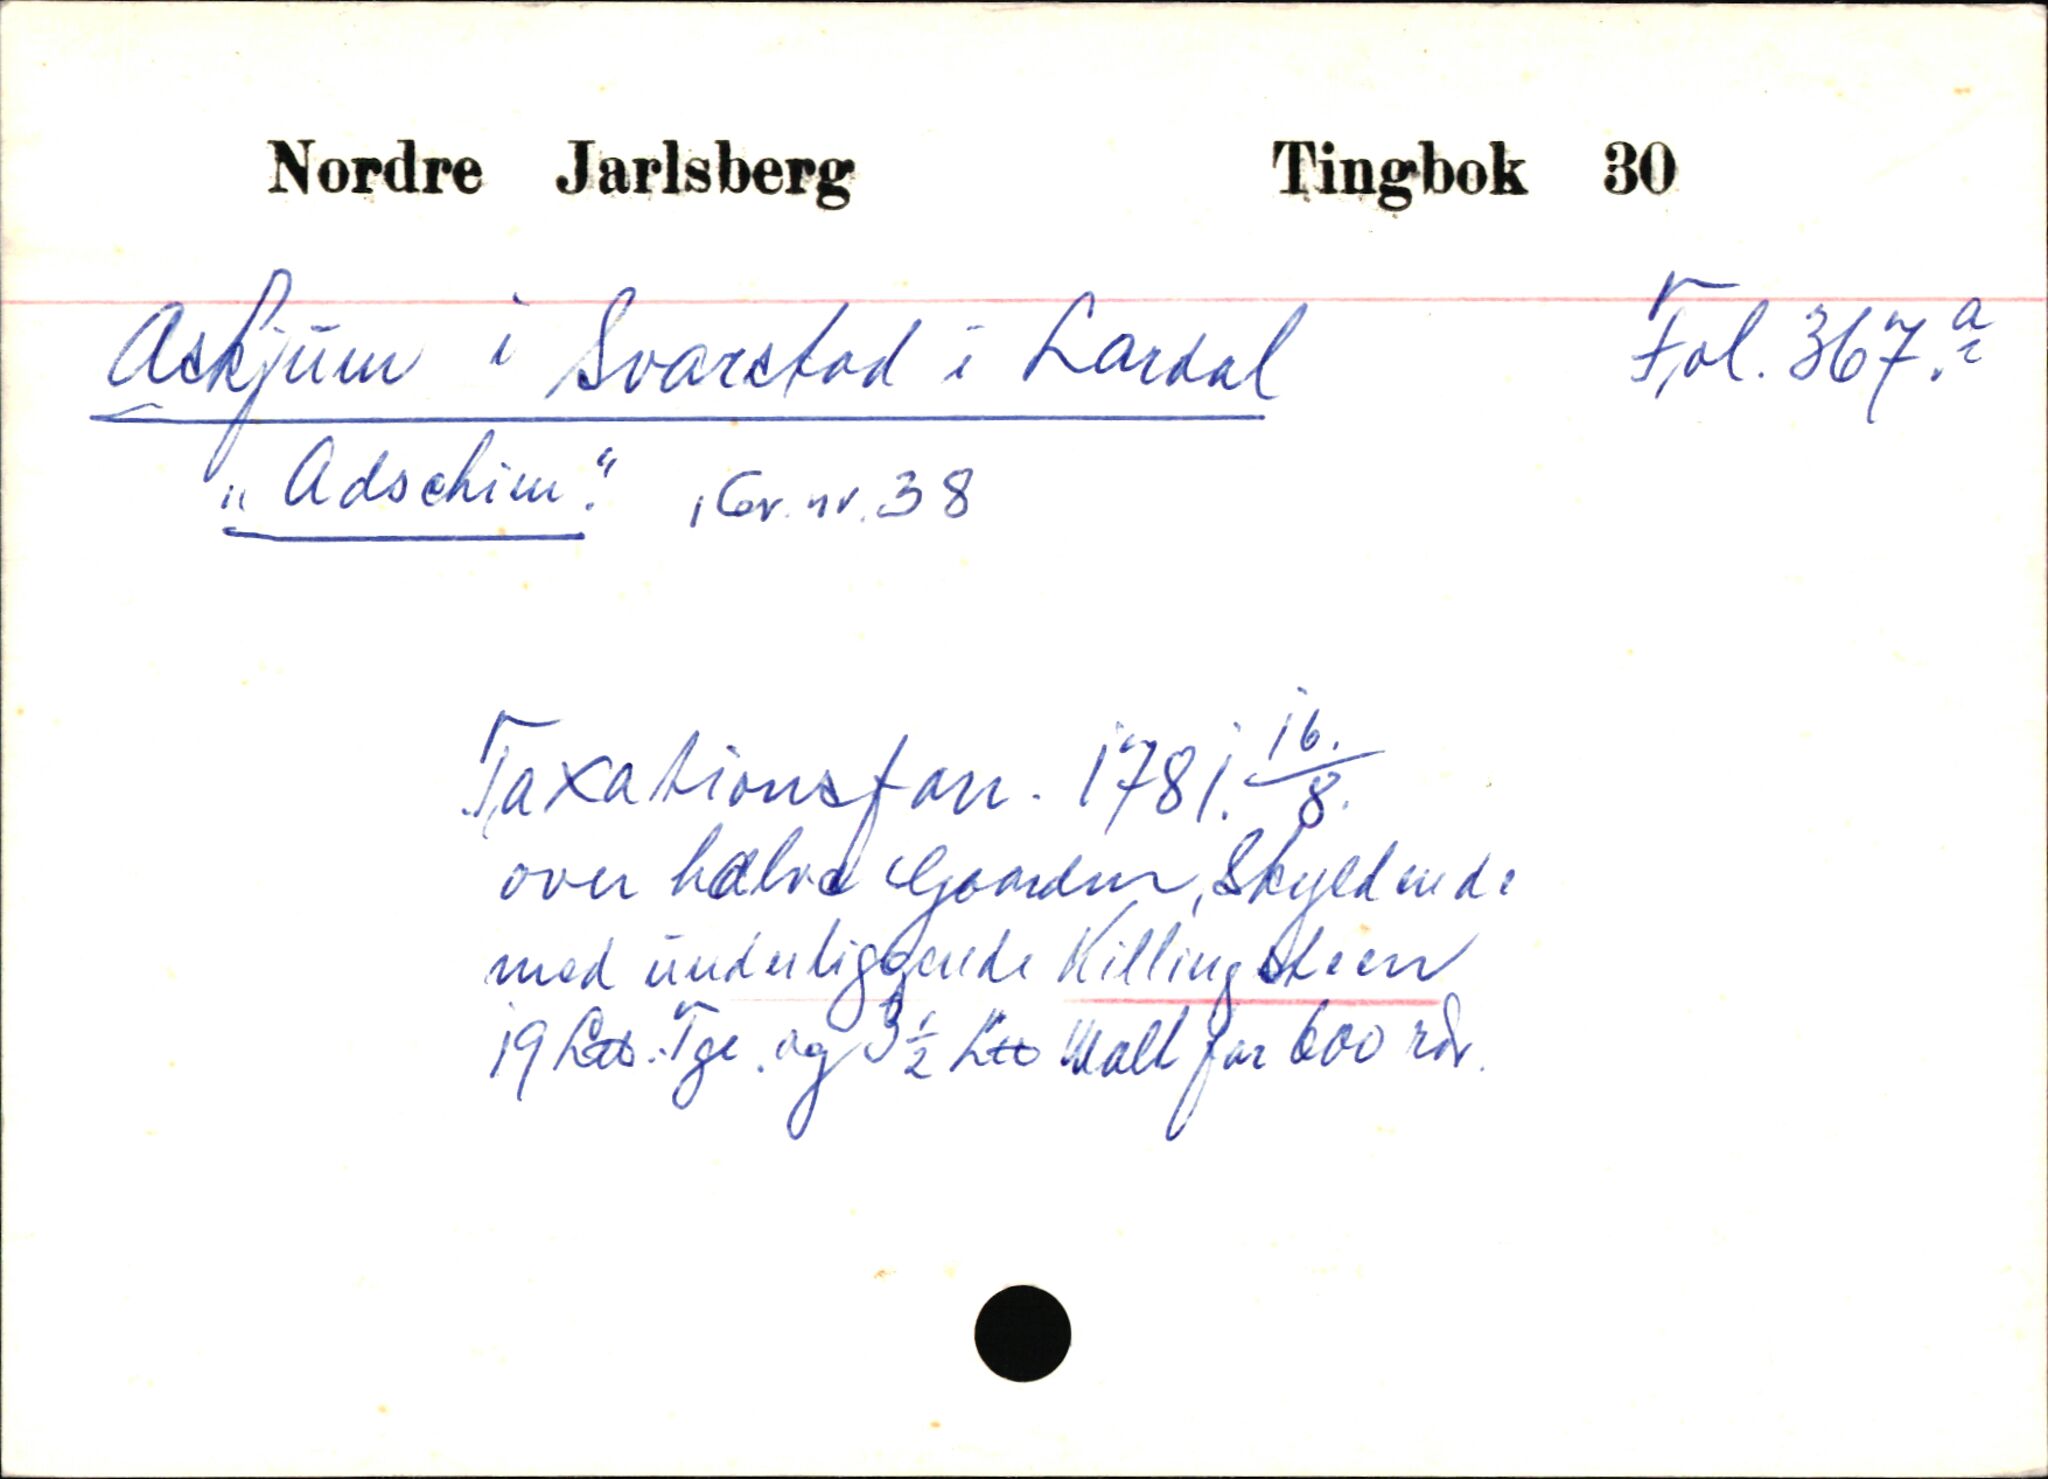 Nordre Jarlsberg Tingbok 30
Askjum i Svarstad i Lardal Fol. 367.a
"Adschim". , Gr. nr. 38
Taxationsforr. 1781. 16./8.
over halve Gaarden, Skyldende
med underliggende Killingsteen
19 Ltb. Tge. og 3 1/2 Ltb Malt for 600 rdr.